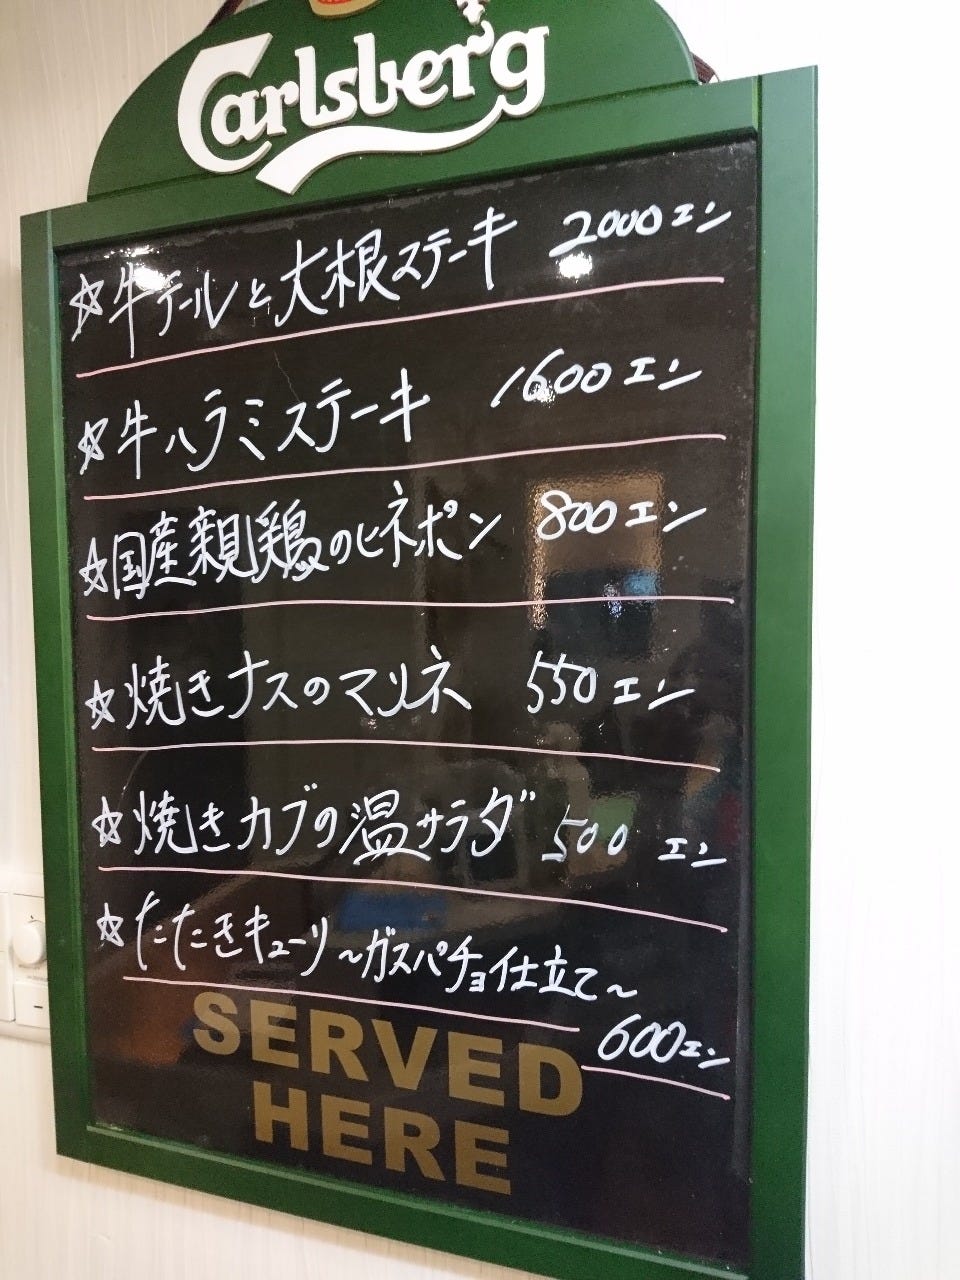 Carlsberg
☆牛テールと大根ステーキ 2000エン
☆牛ハラミステーキ 1600エン
☆国産親鶏のヒネポン 800エン
☆焼きナスのマリネ 550エン
☆焼きカブの温サラダ 500エン
☆たたきキューリ～ガスパチョ仕立て～
600エン
SERVED
HERE